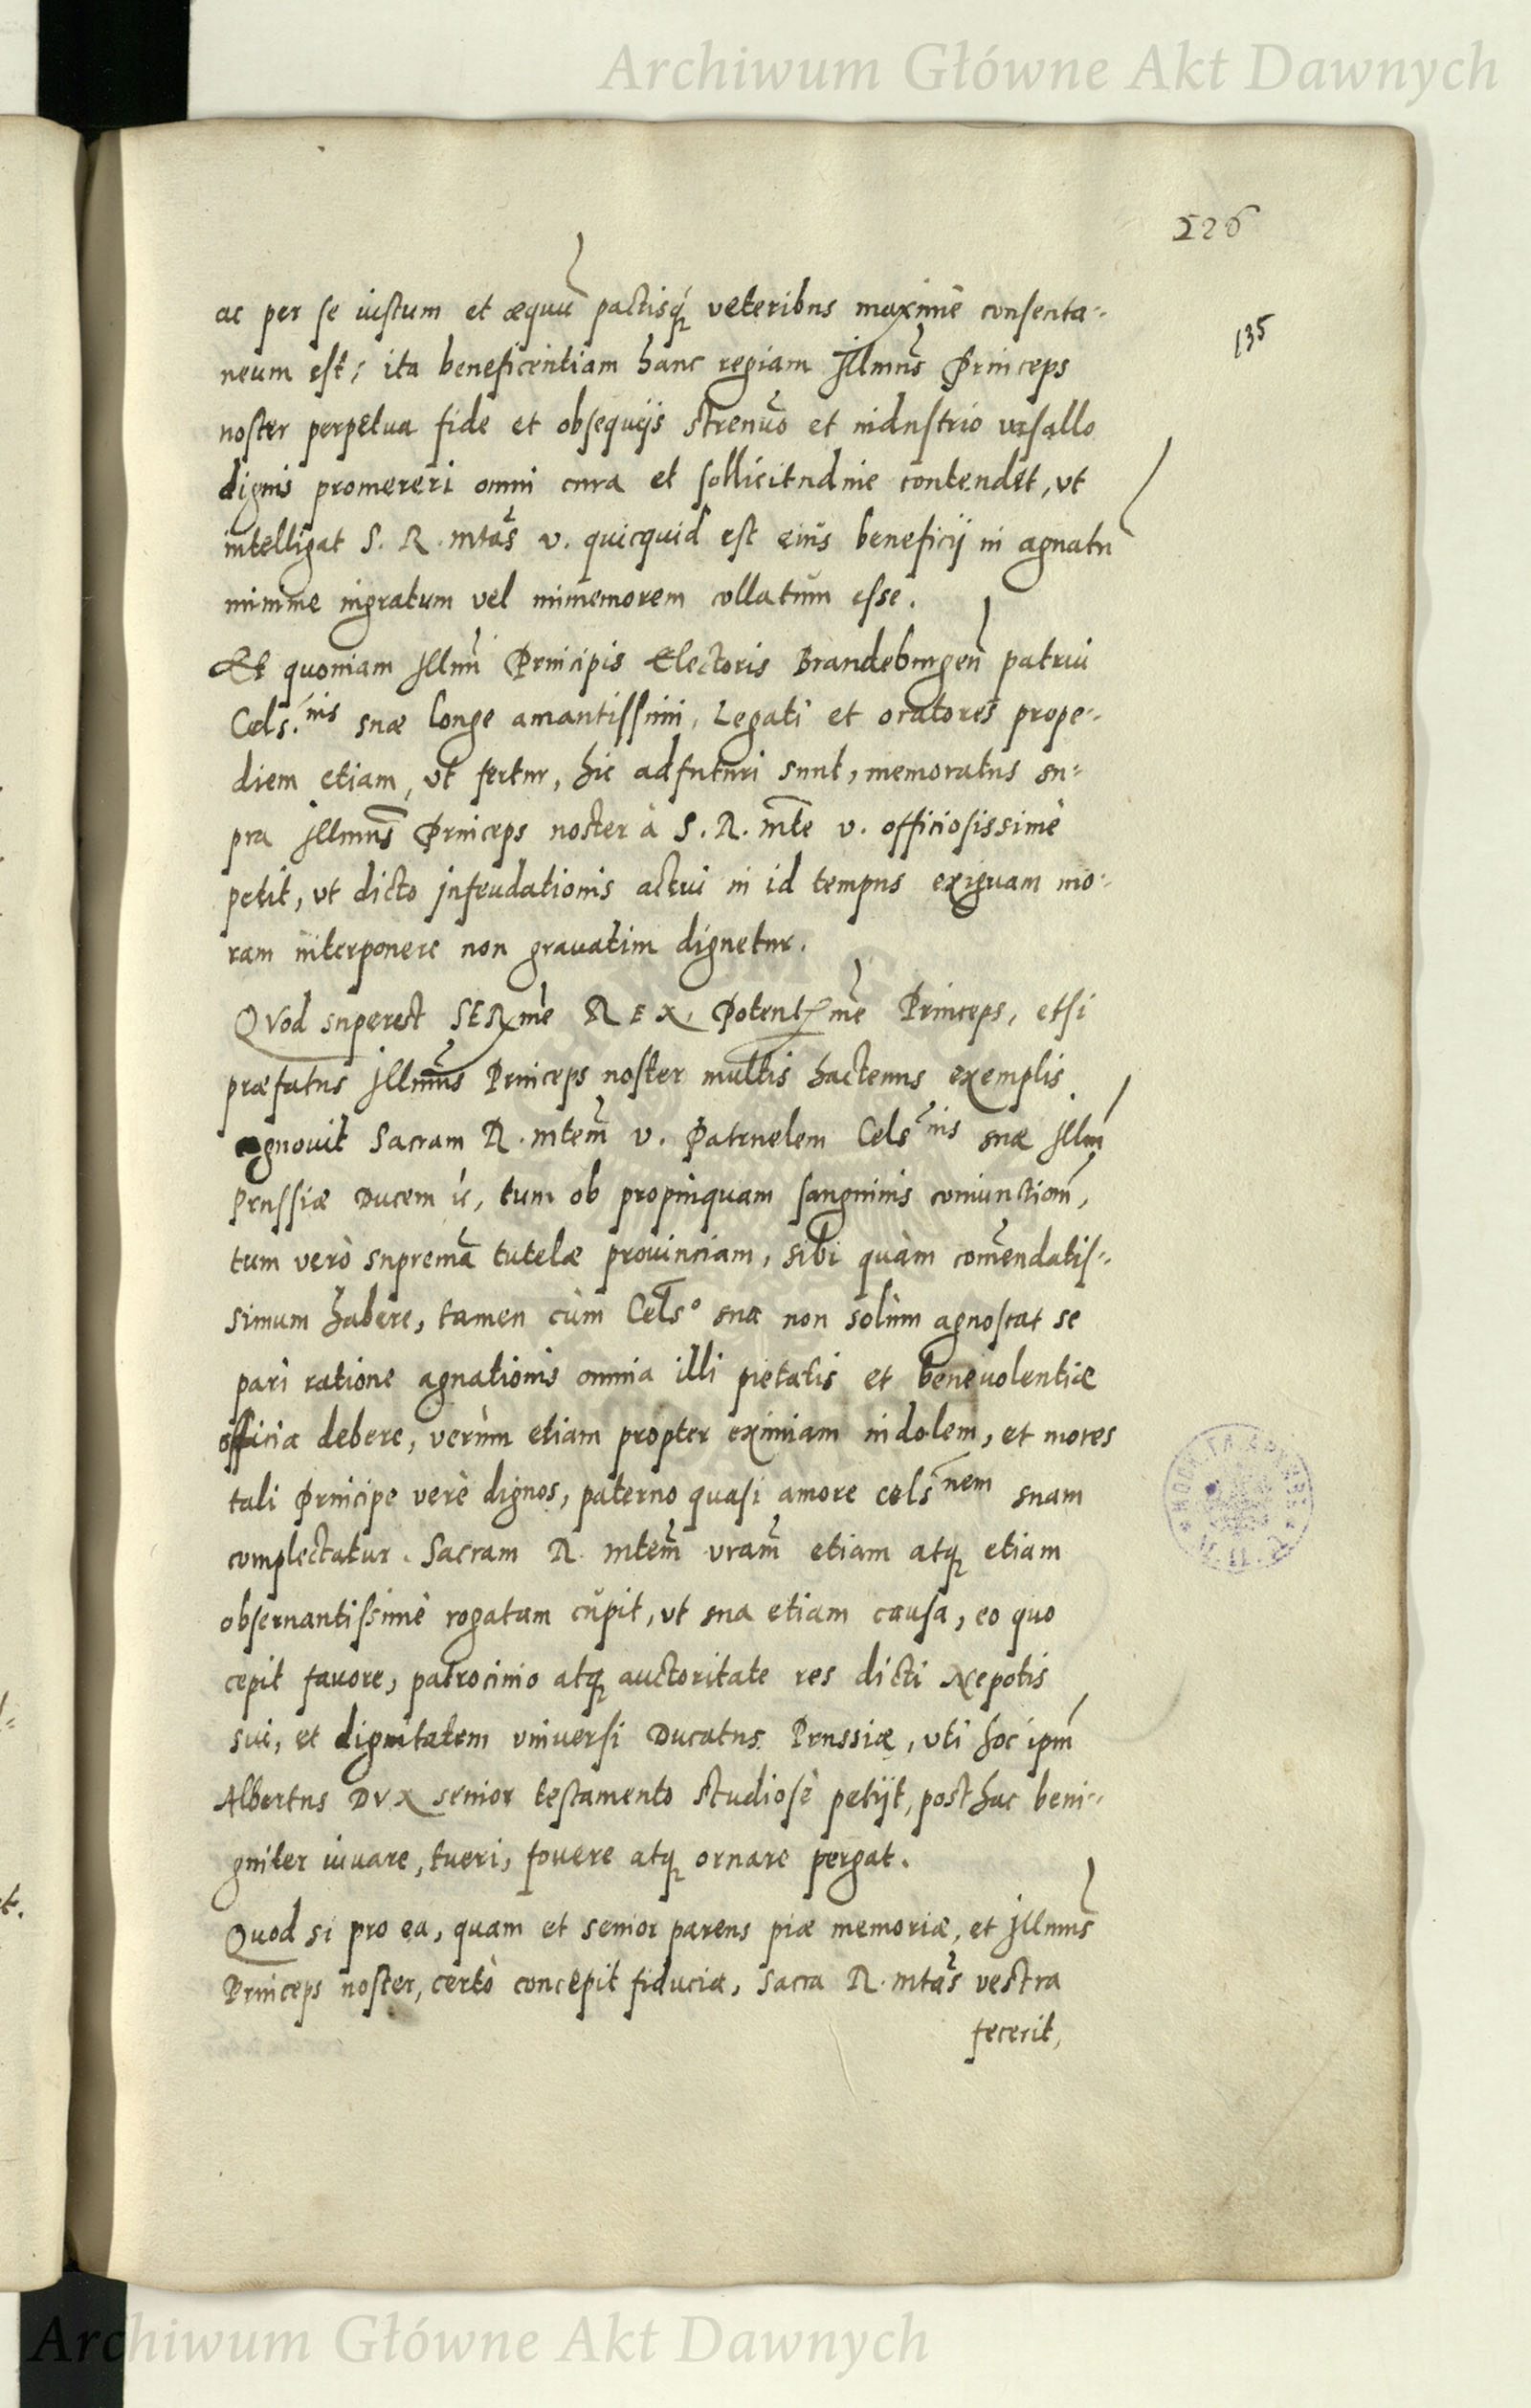 Archiwum Główne Akt Dawnych
526
135
ac per se iustum et æquũ pactisq́ veteribus maximè consenta-
neum est; ita beneficentiam hanc regiam Jllmus Princeps
noster perpetua fide et obsequijs strenuo et industrio vasallo
dignis promereri omni cura et sollicitudine contendet, vt
intelligat S. R. mtas v. quicquid est eius beneficij in agnatũ
minime ingratum vel immemorem collatum esse.
Et quoniam Jllmi Principis Electoris Brandeburgen̄ patrui
Cels.nis suæ longe amantissimi, Legati et oratores prope-
diem etiam, vt fertur, hic adfuturi sunt, memoratus su-
pra Jllmus Princeps noster à S. R. mte v. officiosissimè
petit, vt dicto jnfeudationis actui in id tempus exiguam mo-
ram interponere non grauatim dignetur.
QVod superest SERme REX, Potentme Princeps, etsi
præfatus Jllmus Princeps noster multis hactenus exemplis
agnouit Sacram R. mtem v. Patruelem Celsnis suæ Jllm̄
Prussiæ Ducem &c, tum ob propinquam sanguinis coniunctiom̄,
tum verò supremã tutelæ prouinciam, sibi quàm com̄endatis-
simum habere, tamen cùm Celso sua non solùm agnoscat se
pari ratione agnationis omnia illi pietatis et beneuolentiæ
officia debere, verùm etiam propter eximiam indolem, et mores
tali Principe verè dignos, paterno quasi amore celsnem suam
complectatur. Sacram R. mtem vram̄ etiam atq̨ etiam
obseruantissimè rogatam cupit, vt sua etiam causa, eo quo
cepit fauore, patrocinio atq̨ auctoritate res dicti Nepotis
sui, et dignitatem vniuersi Ducatus Prussiæ, vti hoc ipm̄
Albertus DVX senior testamento studiosè petijt, posthac beni-
gniter iuuare, tueri, fouere atq̨ ornare pergat.
Quod si pro ea, quam et senior parens piæ memoriæ, et Jllmus
Princeps noster, certò concepit fiducia, Sacra R. mtas vestra
fecerit,
Archiwum Główne Akt Dawnych